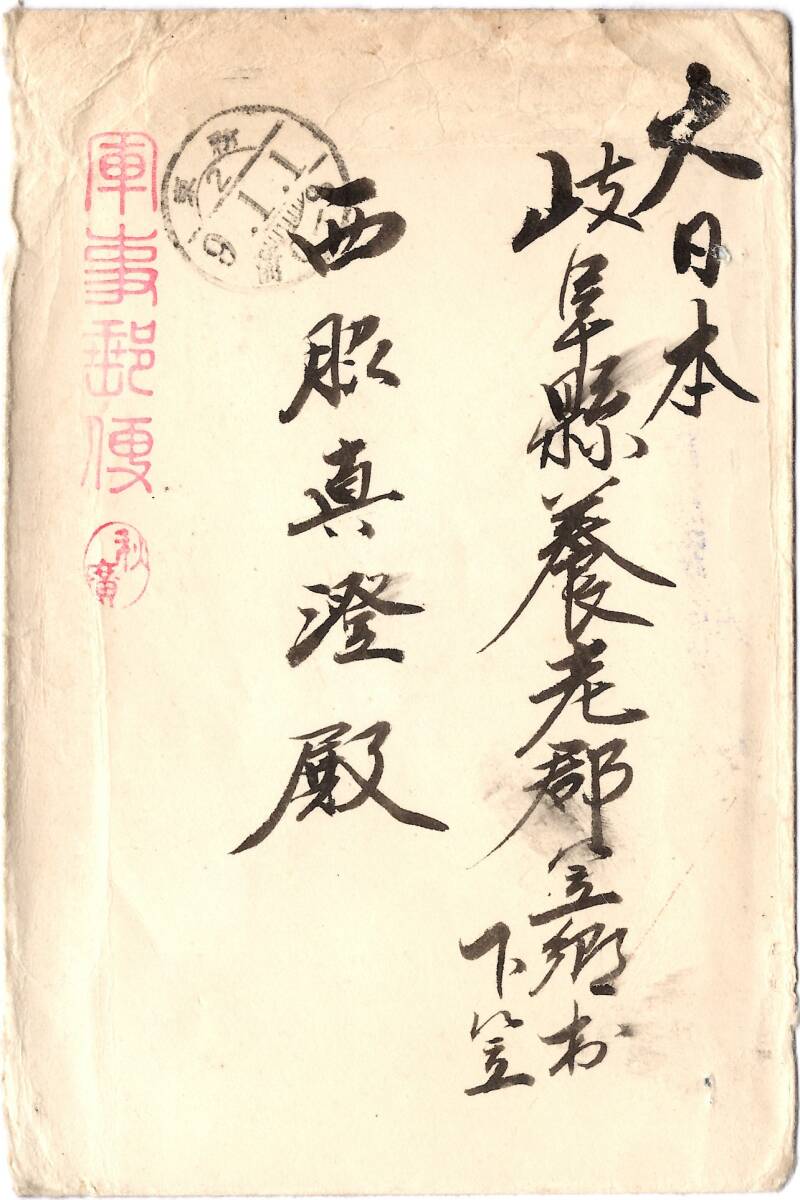 大日本
岐阜縣養老郡笠郷村
下笠
西脇真澄殿
軍事郵便
秋廣
9.1.1